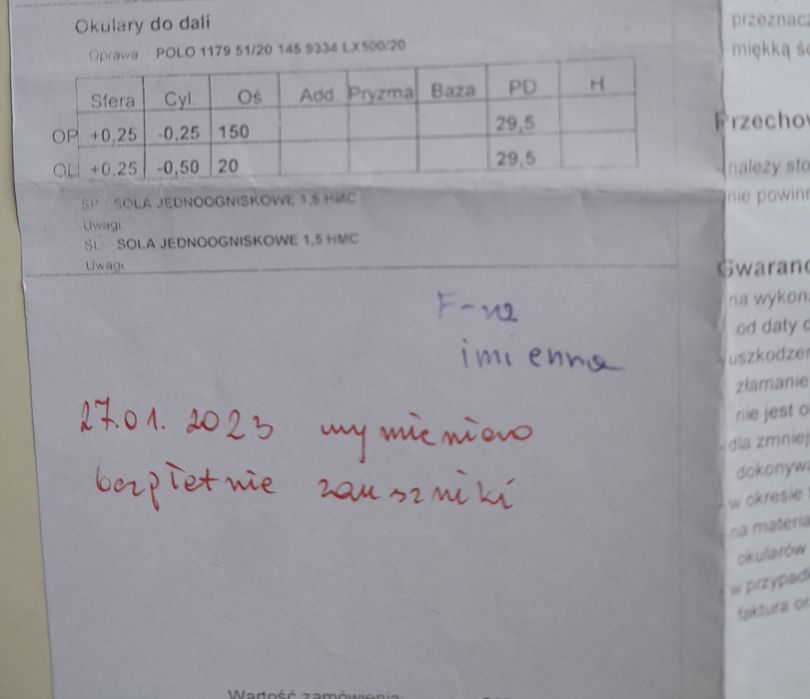 Okulary do dali
Oprawa POLO 1179 51/20 145 9334 LX500/20
Sfera Cyl. Oś Add Pryzma Baza PD H
OP +0,25 -0,25 150 29,5
OL +0,25 -0,50 20 29,5
SP: SOLA JEDNOOGNISKOWE 1,5 HMC
Uwagi:
SL: SOLA JEDNOOGNISKOWE 1,5 HMC
Uwagi:
F-na
imienna
27.01.2023 wymieniono
bezpłatnie zauszniki
Wartość zamówienia:
przeznacz
miękką śc
Przechow
należy sto
nie powinn
Gwaranc
na wykona
od daty d
uszkodzen
złamanie
nie jest o
dla zmniej
dokonywa
w okresie
na materia
okularów
w przypadk
faktura or